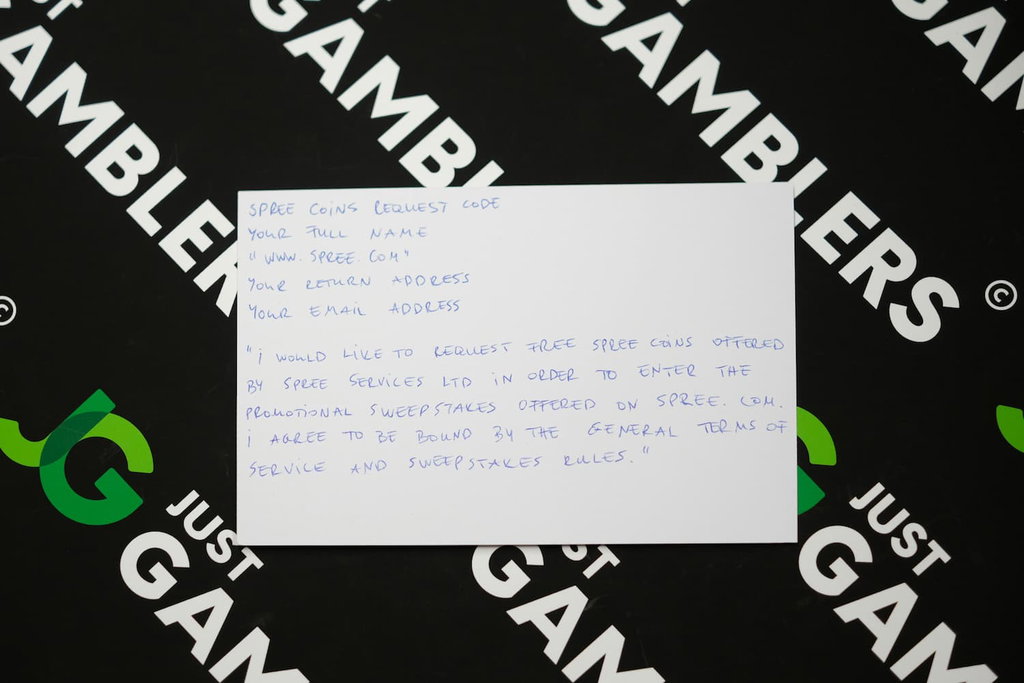 UST
GAMBLERS
GAMBL
GAMBLERS
©
GAM
©
SPREE COINS REQUEST CODE
YOUR FULL NAME
"WWW. SPREE. COM"
YOUR RETURN ADDRESS
YOUR EMAIL ADDRESS
"I WOULD LIKE TO REQUEST FREE SPREE COINS OFFERED
BY SPREE SERVICES LTD IN ORDER TO ENTER THE
PROMOTIONAL SWEEPSTAKES OFFERED ON SPREE. COM.
I AGREE TO BE BOUND BY THE GENERAL TERMS OF
SERVICE AND SWEEPSTAKES RULES."
JUST
GAM
ST
GAM
JUST
GAM